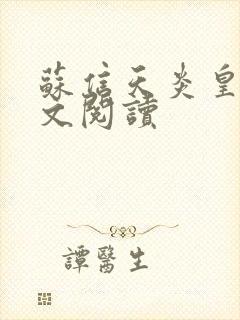 蘇信天炎皇
文閱讀
譚醫生